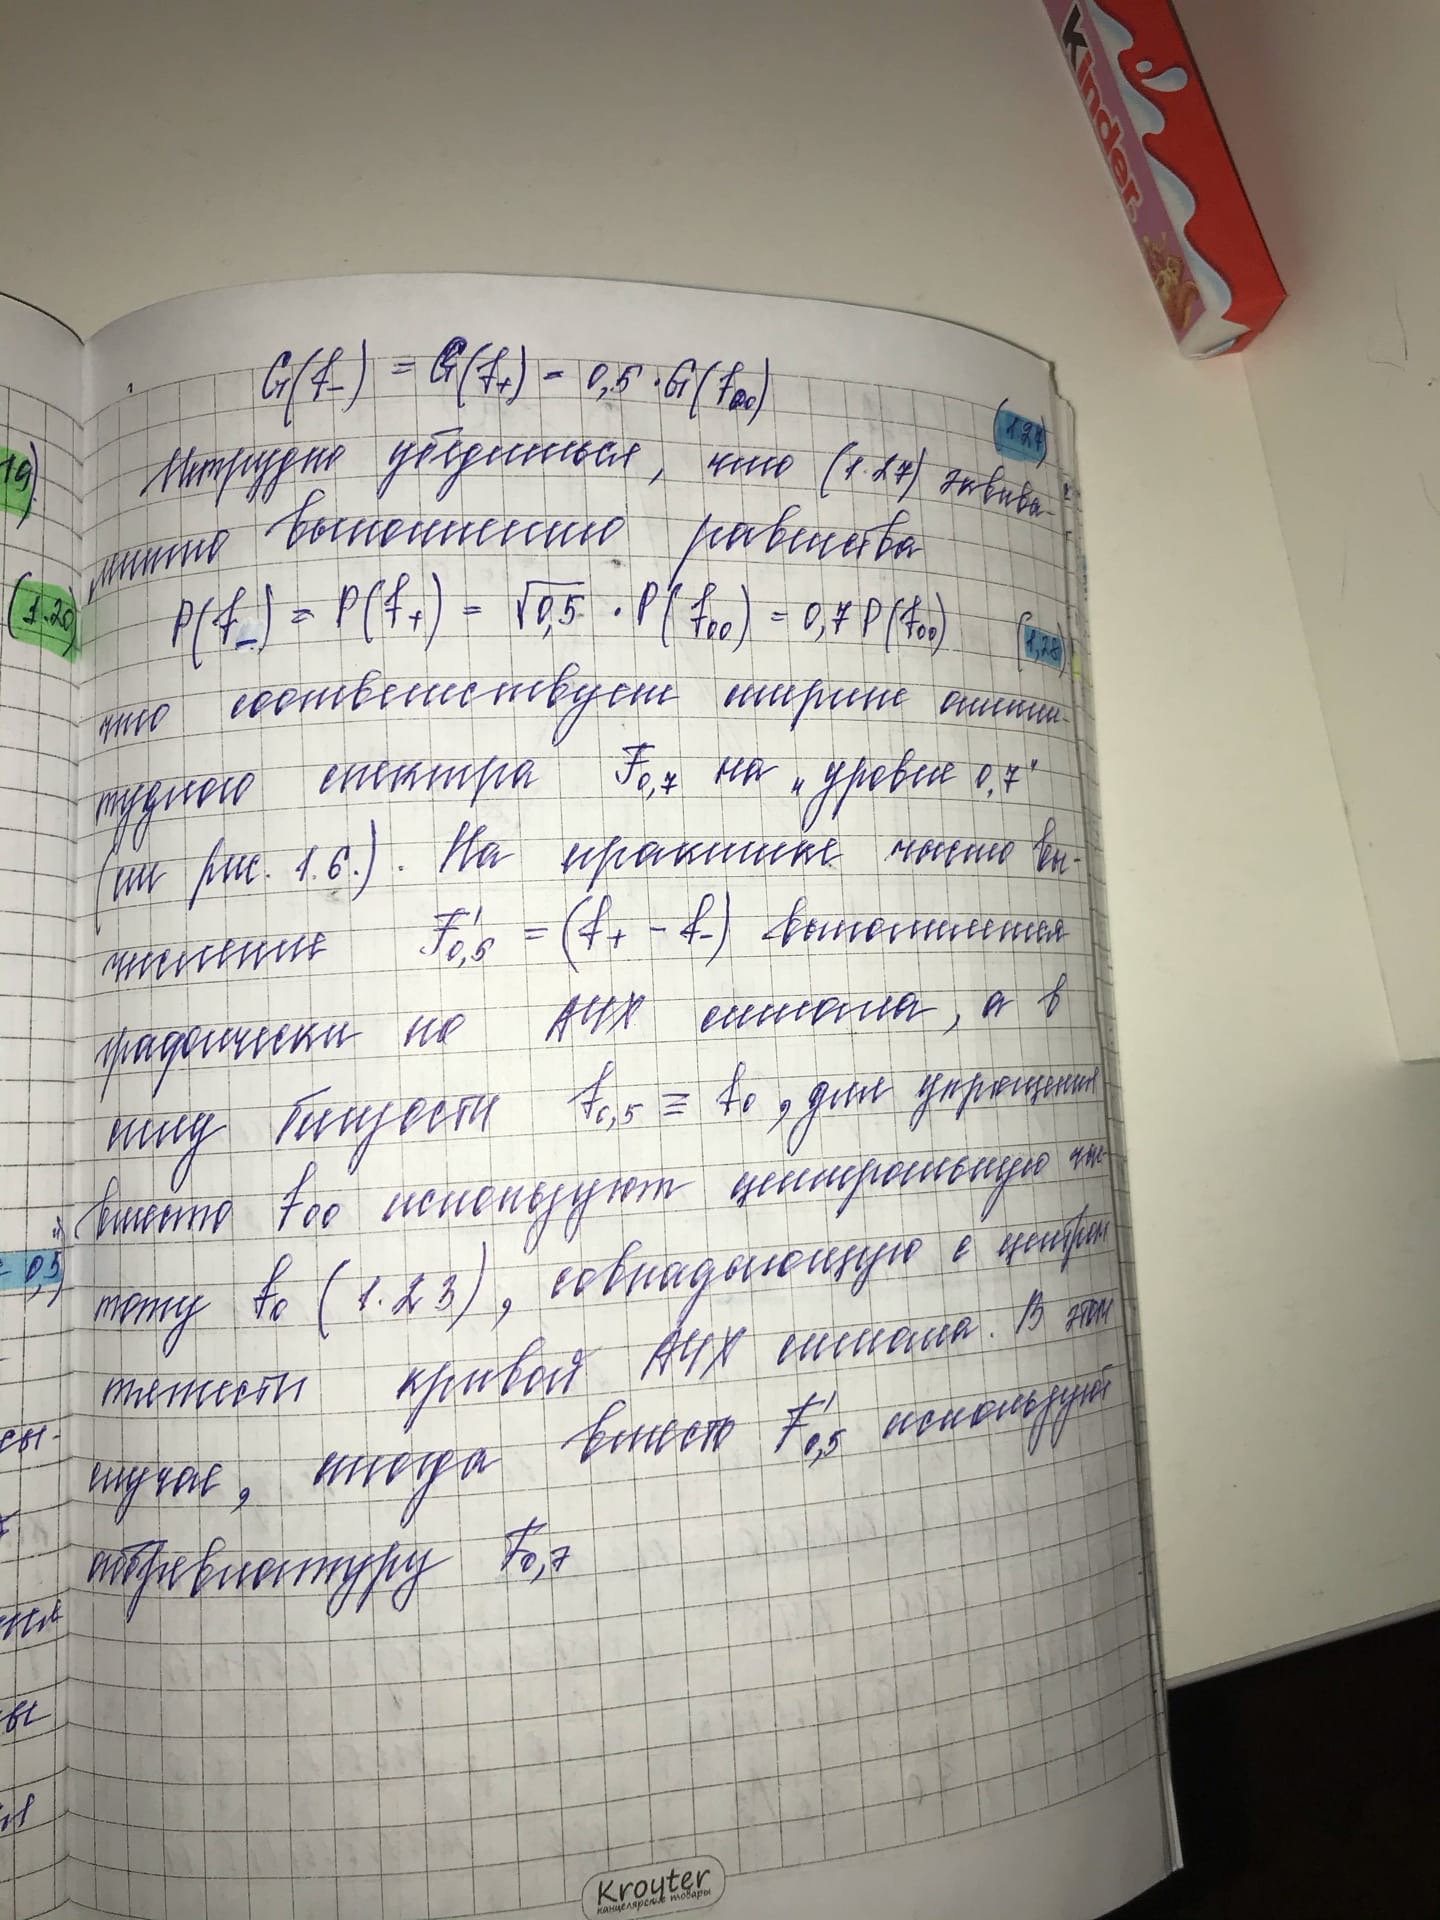 Kinder
G(f₋) = G(f₊) = 0,5 · G(f₀₀)
(1.27)
Нетрудно убедиться, что (1.27) эквива-
лентно выполнению равенства
P(f₋) = P(f₊) = √0,5 · P(f₀₀) = 0,7 P(f₀₀)
(1,28)
что соответствует ширине ампли-
тудного спектра F₀,₇ на „уровне 0,7"
(см рис. 1.6.). На практике часто вы-
числение F'₀,₅ = (f₊ - f₋) выполняется
графически по АЧХ сигнала, а в
силу близости f₀,₅ ≡ f₀, для упрощения
вместо f₀₀ используют центральную час-
тоту f₀ (1.23), совпадающую с центром
тяжести кривой АЧХ сигнала. В этом
случае, иногда вместо F'₀,₅ используют
аббревиатуру F₀,₇
19)
(1.20)
= 0,5
сы-
вы
Kroyter
канцелярские товары